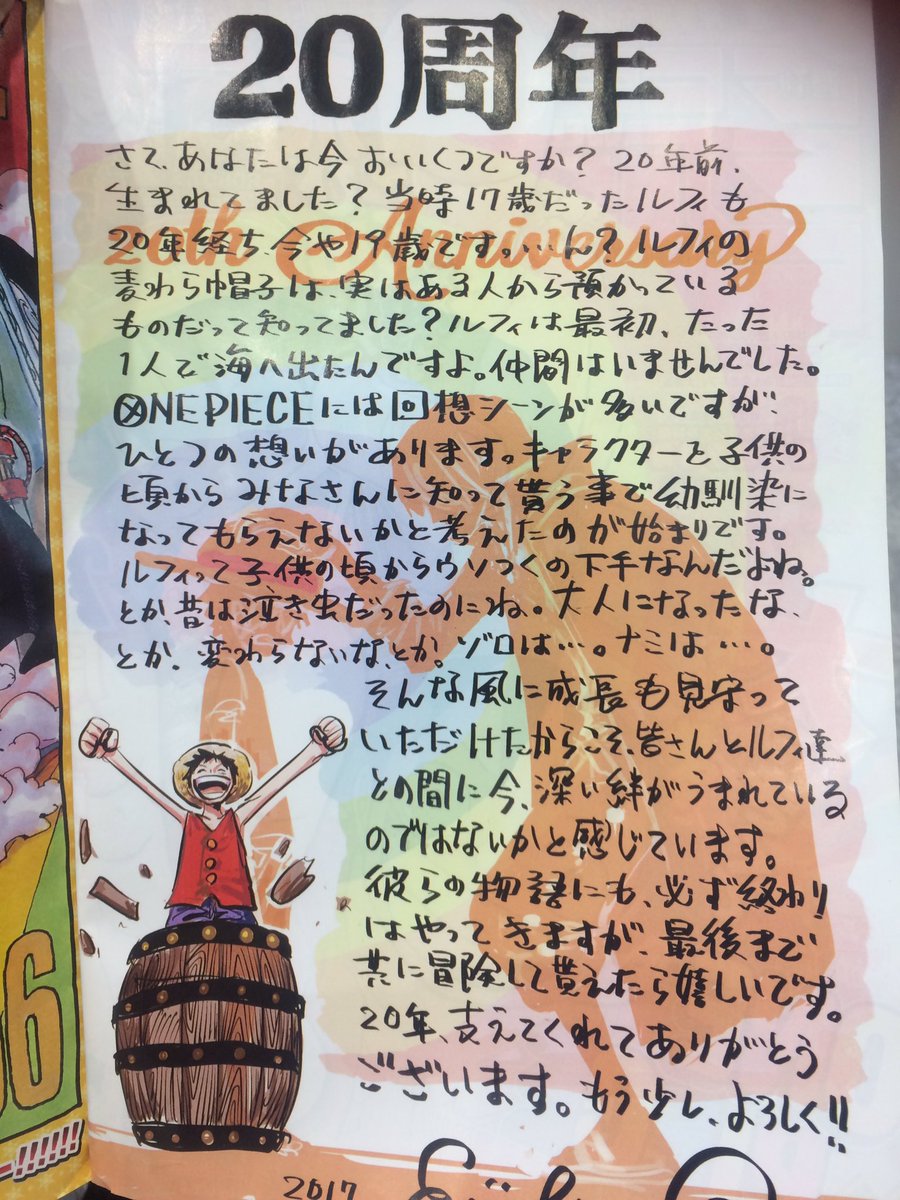 20周年
さて、あなたは今おいくつですか？20年前、
生まれてました？当時17歳だったルフィも
20th Anniversary
20年経ち、今や19歳です。…ん？ルフィの
麦わら帽子は、実はある人から預かっている
ものだって知ってました？ルフィは最初、たった
1人で海へ出たんですよ。仲間はいませんでした。
ONE PIECEには回想シーンが多いですが、
ひとつの想いがあります。キャラクターを子供の
頃からみなさんに知って貰う事で幼馴染に
なってもらえないかと考えたのが始まりです。
ルフィって子供の頃からウソつくの下手なんだよね。
とか、昔は泣き虫だったのにね。大人になったな、
とか、変わらないな、とか。ゾロは…。ナミは…。
そんな風に成長も見守って
いただけたからこそ、皆さんとルフィ達
との間に今、深い絆がうまれている
のではないかと感じています。
彼らの物語にも、必ず終わり
はやってきますが、最後まで
共に冒険して貰えたら嬉しいです。
20年、支えてくれてありがとう
ございます。もう少し、よろしく!!
2017
6
!!!!!!